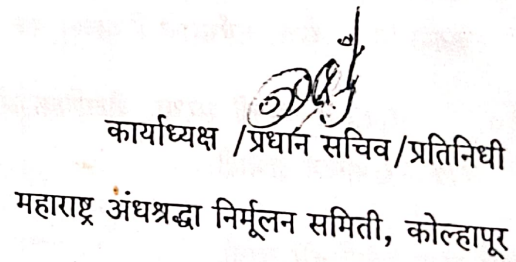 कार्याध्यक्ष /प्रधान सचिव/प्रतिनिधी
महाराष्ट्र अंधश्रद्धा निर्मूलन समिती, कोल्हापूर